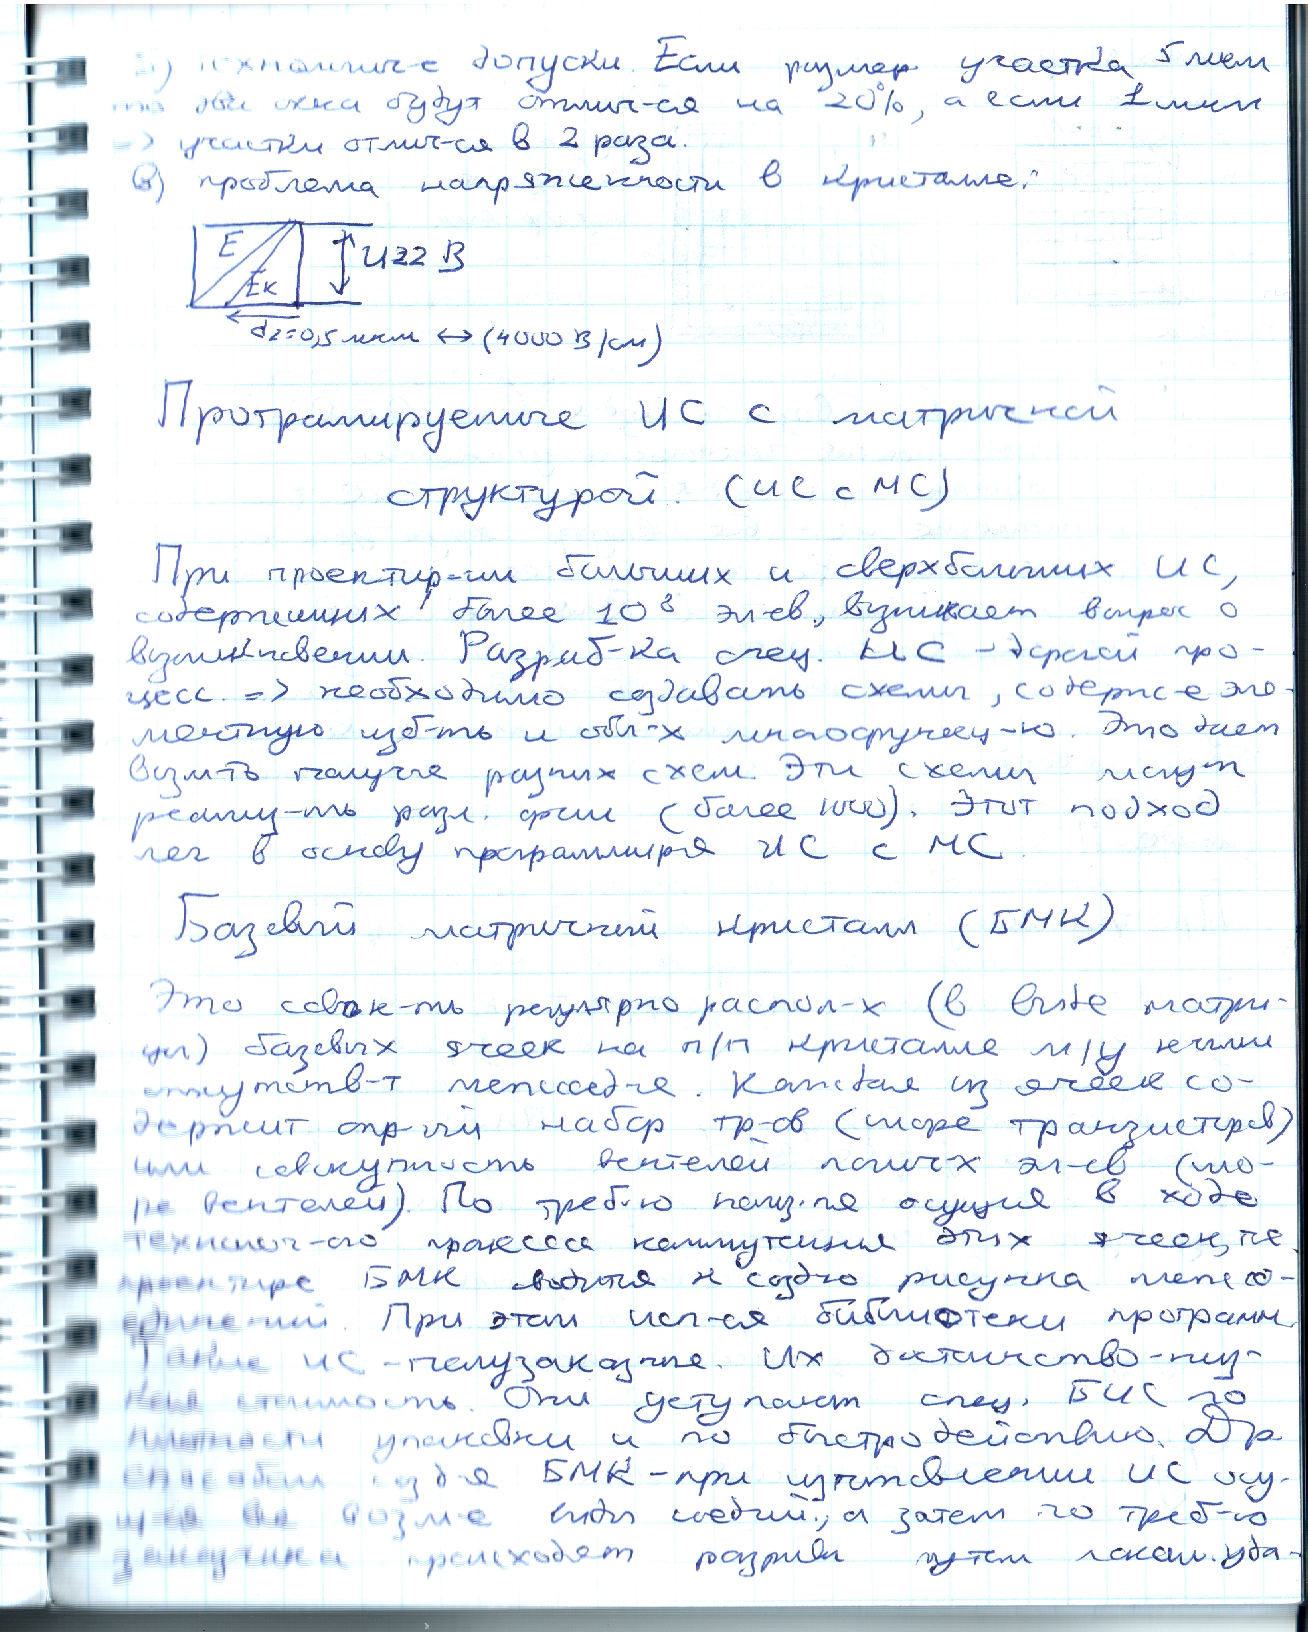 допуски. Если размер участка 5 мкм
то два окна будут отлич-ся на 20%, а если 1 мкм
=> участки отлич-ся в 2 раза.
в) проблема напряженности в кристалле:
E
Eк
U≥2 В
d₂=0,5 мкм ↔ (4000 В/см)
Програмируемые ИС с матричной
структурой. (ИС с МС)
При проектир-ии больших и сверхбольших ИС,
содержащих более 10³ эл-ев, возникает вопрос о
возникновении. Разраб-ка спец. ИС - дорогой про-
цесс. => необходимо создавать схемы, содерж-е эле-
ментную изб-ть и обл-х многофункц-ю. Это дает
возм-ть получе разных схем. Эти схемы могут
реализ-ть разл. фии (более 1000). Этот подход
лег в основу программиря ИС с МС
Базовый матричный кристалл (БМК)
Это совок-ть регулярно распол-х (в виде матри-
цы) базовых ячеек на п/п кристалле м/у ними
отсутств-т межсоед-я. Каждая из ячеек со-
держит опр-ый набор тр-ов (море транзисторов)
или совокупность вентелей логич-х эл-ев (мо-
ре вентелей). По треб-ю польз-ля осущ-ся в ходе
технолог-ого процесса коммутация этих ячеек, т.е.
проектире БМК сводится к создю рисунка межсо-
единений. При этом исп-ся библиотеки программ.
Такие ИС - полузаказные. Их достоинство - низ-
кая стоимость. Они уступают спец. БИС по
плотности упаковки и по быстродействию. Др
способом созд-я БМК - при изготовлении ИС осу-
щ-ся все возм-е виды соедий, а затем по треб-ю
заказчика происходят разрывы путем локал. уда-